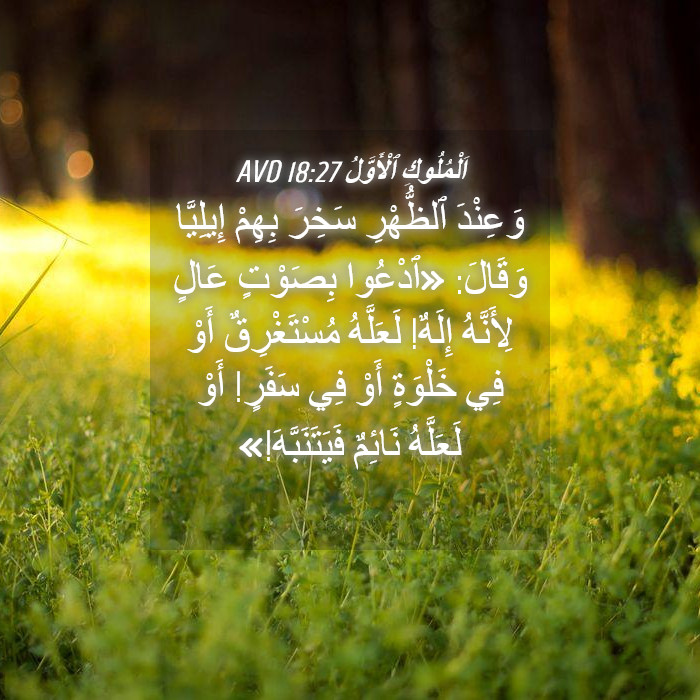 اَلْمُلُوكِ ٱلْأَوَّلُ 18:27 AVD
وَعِنْدَ ٱلظُّهْرِ سَخِرَ بِهِمْ إِيلِيَّا
وَقَالَ: «ٱدْعُوا بِصَوْتٍ عَالٍ
لِأَنَّهُ إِلَهٌ! لَعَلَّهُ مُسْتَغْرِقٌ أَوْ
فِي خَلْوَةٍ أَوْ فِي سَفَرٍ! أَوْ
لَعَلَّهُ نَائِمٌ فَيَتَنَبَّهَ!»